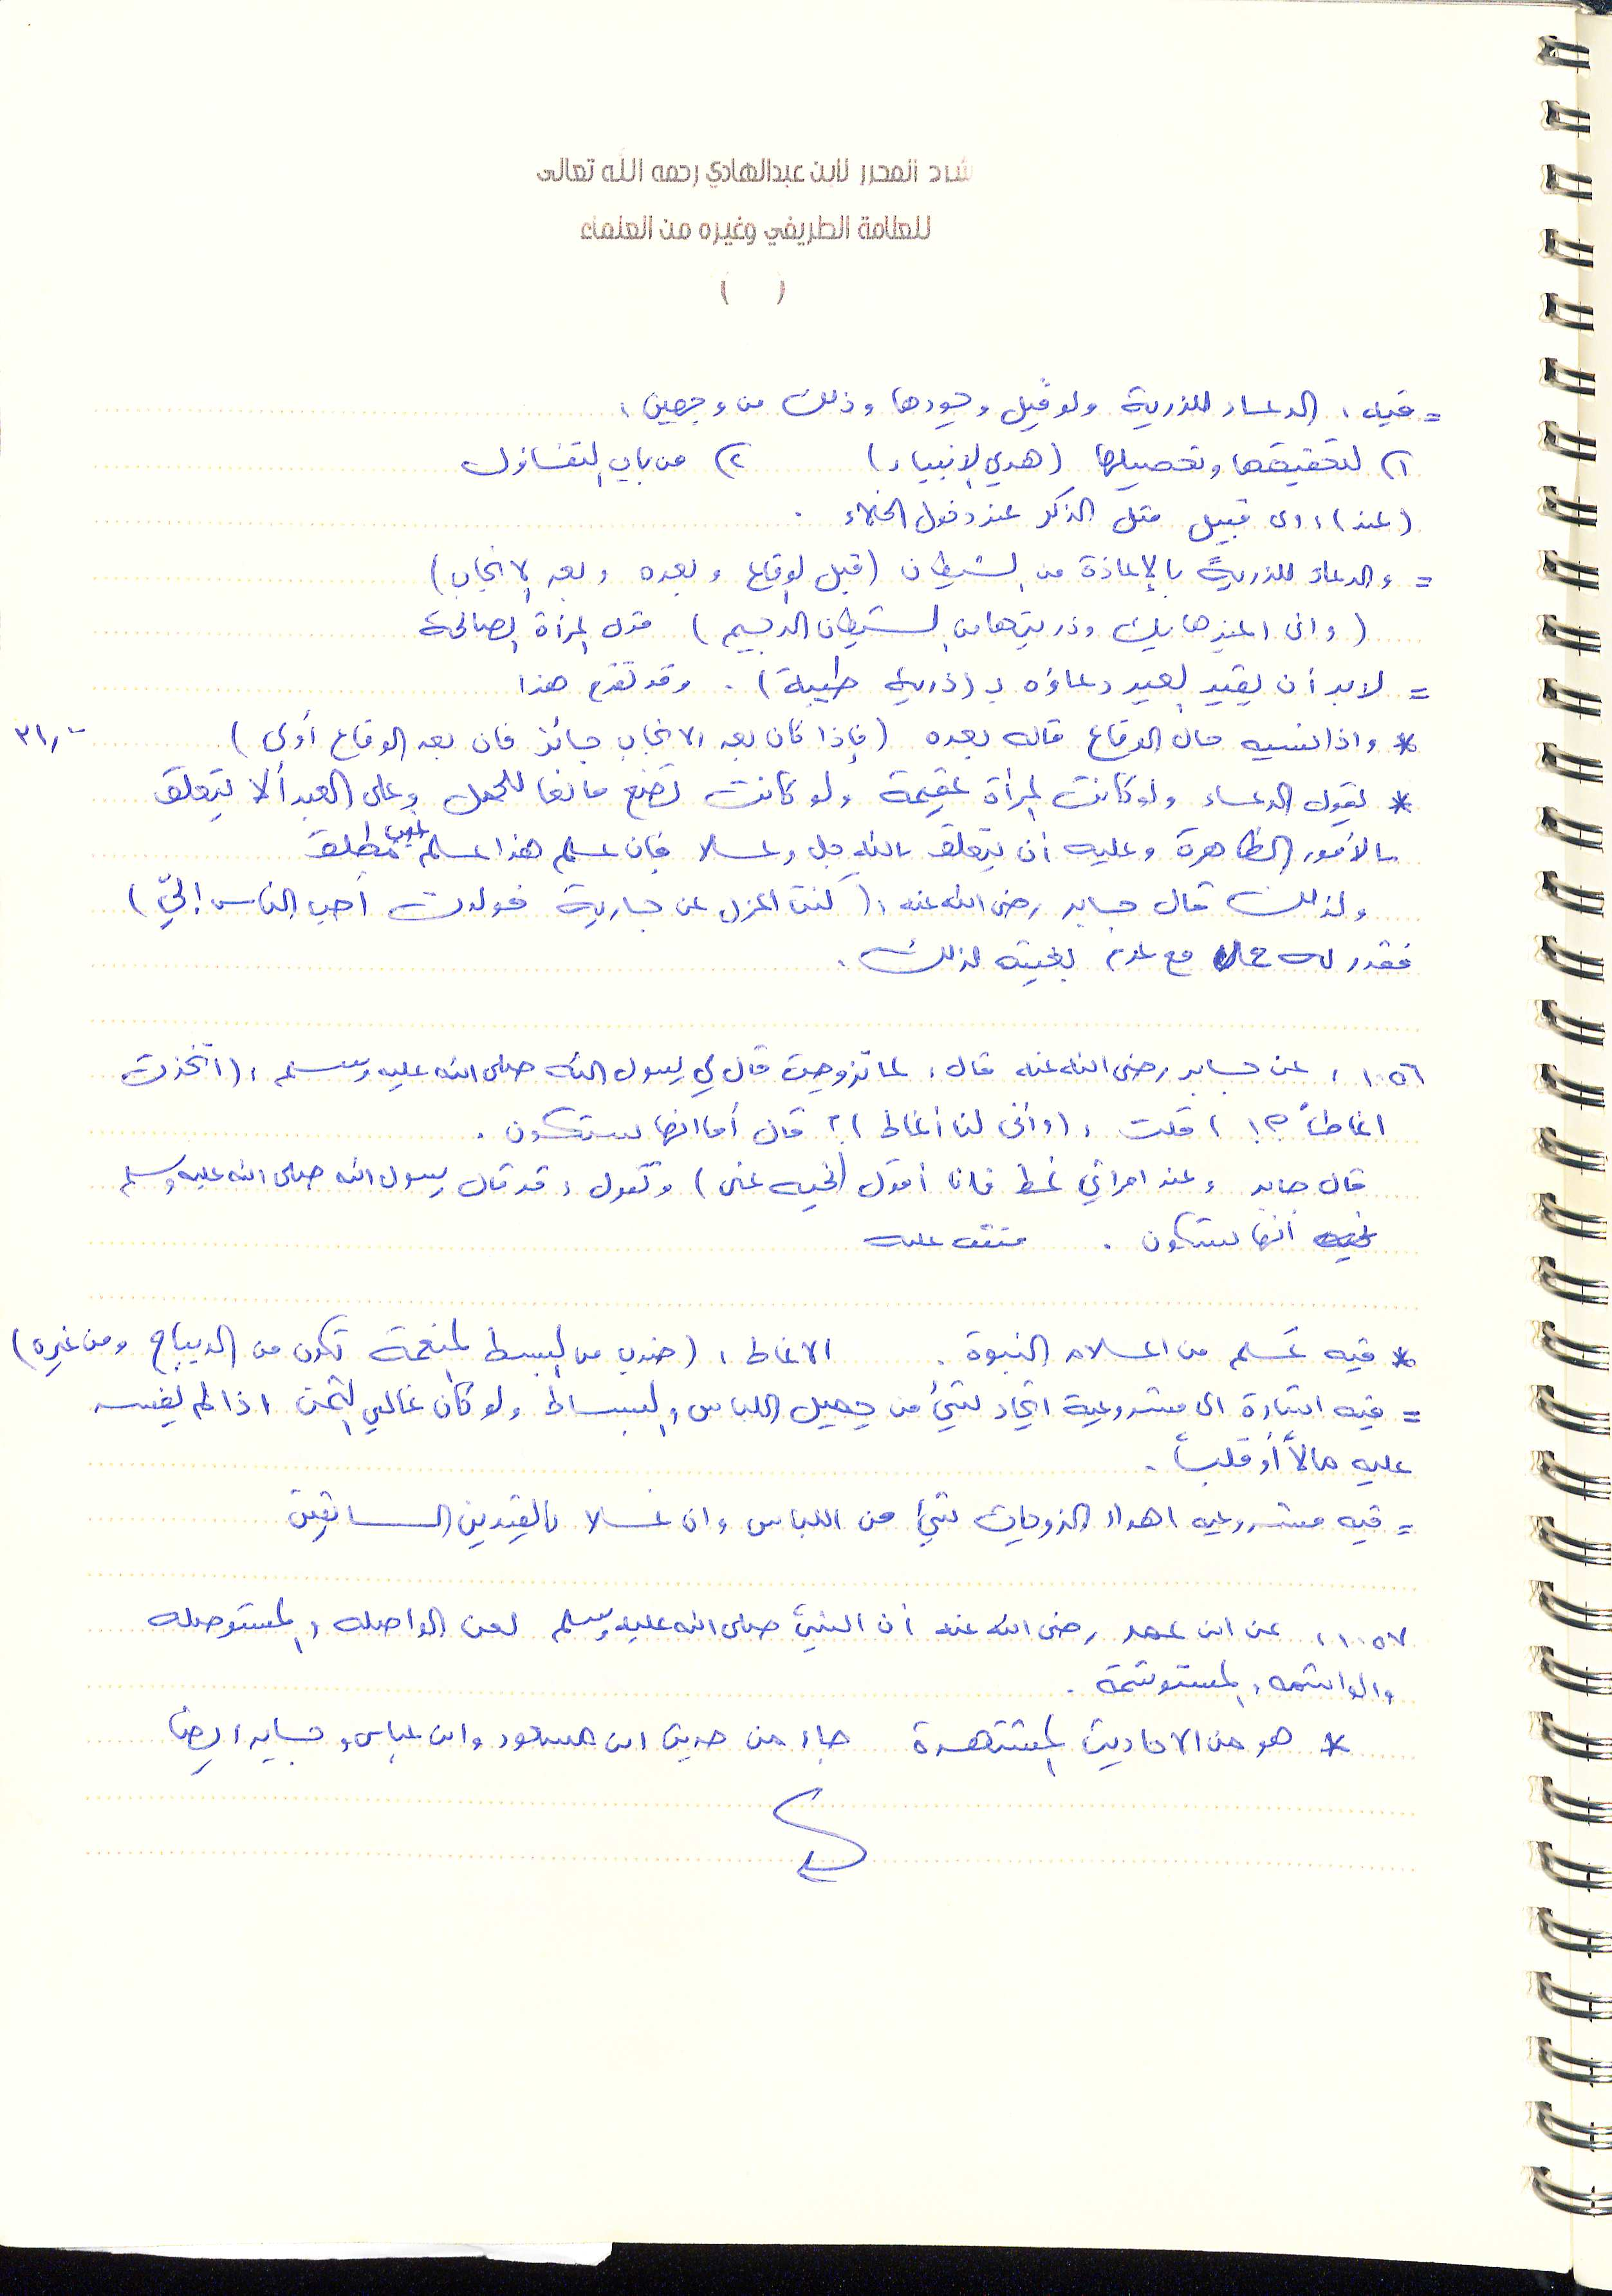 شرح المحرر لابن عبدالهادي رحمه الله تعالى
للعلامة الطريفي وغيره من العلماء
( )
= فيه : الدعاء للذرية ولو قبل وجودها وذلك من وجهين :
١) لتحقيقها وتحصيلها (هدي الانبياء) ٢) من باب التفاؤل
(عند) : اى قبيل مثل الذكر عند دخول الخلاء .
= والدعاء للذرية بالإعاذة من الشيطان (قبل الوقاع وبعده وبعد الانجاب)
(وانى اعيذها بك وذريتها من الشيطان الرجيم) قول المرأة الصالحة
= لابد أن يقيد العبد دعاؤه بـ (ذرية طيبة) . وقد تقدم هذا
* واذا نسيه حال الوقاع قاله بعده (فإذا كان بعد الانجاب جائز فان بعد الوقاع أولى) ٣١٫٠
* يقول الدعاء ولو كانت المرأة عقيمة ولو كانت تضع مانعا للحمل وعلى العبد ألا يتعلق
بالأمور الظاهرة وعليه أن يتعلق بالله جل وعلا فان علم هذا علم غيب مطلق
ولذلك قال جابر رضى الله عنه : (كنت اعزل عن جارية فولدت أحب الناس إليّ)
فقدر له مع عدم بغيته لذلك .
١٠٥٦ : عن جابر رضى الله عنه قال : لما تزوجت قال لي رسول الله صلى الله عليه وسلم : (اتخذت
انماطاً ؟! ) قلت : (وأنى لنا أنماط) ؟ قال أما انها ستكون .
قال جابر وعند امرأتي نمط فانا أقول (نحيه عنى) وتقول : قد قال رسول الله صلى الله عليه وسلم
أنها ستكون . متفق عليه
* فيه عَلَم من اعلام النبوة . الانماط : (ضرب من البسط المنعمة تكون من الديباج ومن غيره)
= فيه اشارة الى مشروعية اتخاذ شيء من جميل اللباس والبساط ولو كان غالي الثمن اذا لم يفسد
عليه مالاً أو قلباً .
= فيه مشروعيه اهداء الزوجات شيء من اللباس وان غلا بالقيدين السابقين
١٠٥٧ : عن ابن عمر رضى الله عنه أن النبيّ صلى الله عليه وسلم لعن الواصله والمستوصله
والواشمه والمستوشمة .
* هو من الاحاديث المشتهرة جاء من حديث ابن مسعود وابن عباس وجابر ايضا